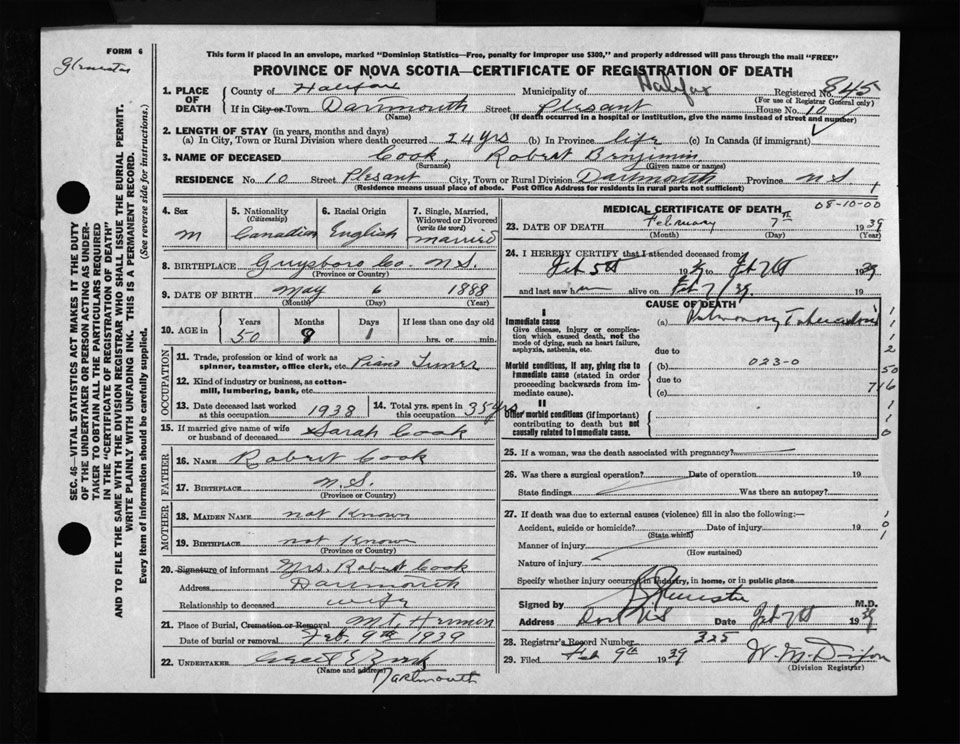 FORM 6
This form if placed in an envelope, marked "Dominion Statistics—Free, penalty for improper use $300," and properly addressed will pass through the mail "FREE"
PROVINCE OF NOVA SCOTIA—CERTIFICATE OF REGISTRATION OF DEATH
1. PLACE OF DEATH
County of Halifax Municipality of Halifax Registered No. 845
(For use of Registrar General only)
If in City or Town Darmouth Street Plesant House No. 10
(Name) (If death occurred in a hospital or institution, give the name instead of street and number)
2. LENGTH OF STAY (in years, months and days)
(a) In City, Town or Rural Division where death occurred 24 yrs (b) In Province life (c) In Canada (if immigrant)
3. NAME OF DECEASED Cook, Robert Benjimin
(Surname) (Given name or names)
RESIDENCE No. 10 Street Plesant City, Town or Rural Division Darmouth Province N.S.
(Residence means usual place of abode. Post Office Address for residents in rural parts not sufficient)
4. Sex M
5. Nationality (Citizenship) Canadian
6. Racial Origin English
7. Single, Married, Widowed or Divorced (write the word) married
8. BIRTHPLACE Guysboro Co. N.S.
(Province or Country)
9. DATE OF BIRTH May 6 1888
(Month) (Day) (Year)
10. AGE in Years Months Days If less than one day old
50 9 1 hrs. or min.
OCCUPATION
11. Trade, profession or kind of work as spinner, teamster, office clerk, etc. Piano Tuner
12. Kind of industry or business, as cotton-mill, lumbering, bank, etc.
13. Date deceased last worked at this occupation 1938
14. Total yrs. spent in this occupation 35 yrs
15. If married give name of wife or husband of deceased Sarah Cook
FATHER
16. NAME Robert Cook
17. BIRTHPLACE N.S.
(Province or Country)
MOTHER
18. MAIDEN NAME not Known
19. BIRTHPLACE not Known
(Province or Country)
20. Signature of informant Mrs. Robert Cook
Address Darmouth
Relationship to deceased wife
21. Place of Burial, Cremation or Removal Mt. Hermon
Date of burial or removal Feb. 9th 1939
22. UNDERTAKER
(Name and address)
Dartmouth
MEDICAL CERTIFICATE OF DEATH 08-10-00
23. DATE OF DEATH February 7th 1939
(Month) (Day) (Year)
24. I HEREBY CERTIFY that I attended deceased from
Feb 5th 1939 to Feb 7th 1939
and last saw him alive on Feb 7/39 19
CAUSE OF DEATH
I
Immediate cause
Give disease, injury or complication which caused death, not the mode of dying, such as heart failure, asphyxia, asthenia, etc.
(a) Pulmonary Tuberculosis
due to
Morbid conditions, if any, giving rise to immediate cause (stated in order proceeding backwards from immediate cause).
(b) 023-0
due to
(c)
II
Other morbid conditions (if important) contributing to death but not causally related to immediate cause.
1
1
2
50
716
1
1
0
25. If a woman, was the death associated with pregnancy?
26. Was there a surgical operation? Date of operation 19
State findings Was there an autopsy?
27. If death was due to external causes (violence) fill in also the following:—
Accident, suicide or homicide? Date of injury 19
(State which)
Manner of injury
(How sustained)
Nature of injury
1
0
1
Specify whether injury occurred in industry, in home, or in public place
Signed by M.D.
Address Dart N.S. Date Feb 7th 1939
28. Registrar's Record Number 325
29. Filed Feb 9th 1939 W. M. Dixon
(Division Registrar)
SEC. 46—VITAL STATISTICS ACT MAKES IT THE DUTY OF THE UNDERTAKER OR PERSON ACTING AS UNDERTAKER TO OBTAIN ALL THE PARTICULARS REQUIRED IN THE "CERTIFICATE OF REGISTRATION OF DEATH"
AND TO FILE THE SAME WITH THE DIVISION REGISTRAR WHO SHALL ISSUE THE BURIAL PERMIT.
WRITE PLAINLY WITH UNFADING INK. THIS IS A PERMANENT RECORD.
Every item of information should be carefully supplied. (See reverse side for instructions.)